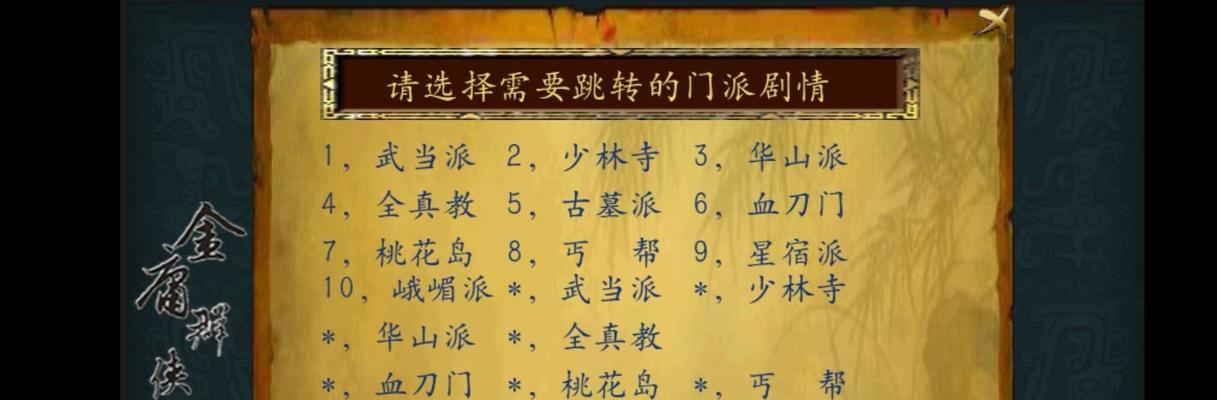 请选择需要跳转的门派剧情
1，武当派 2，少林寺 3，华山派
4，全真教 5，古墓派 6，血刀门
7，桃花岛 8，丐　帮 9，星宿派
10，峨嵋派 *，武当派 *，少林寺
*，华山派 *，全真教
*，血刀门 *，桃花岛 *，丐　帮
金庸群侠